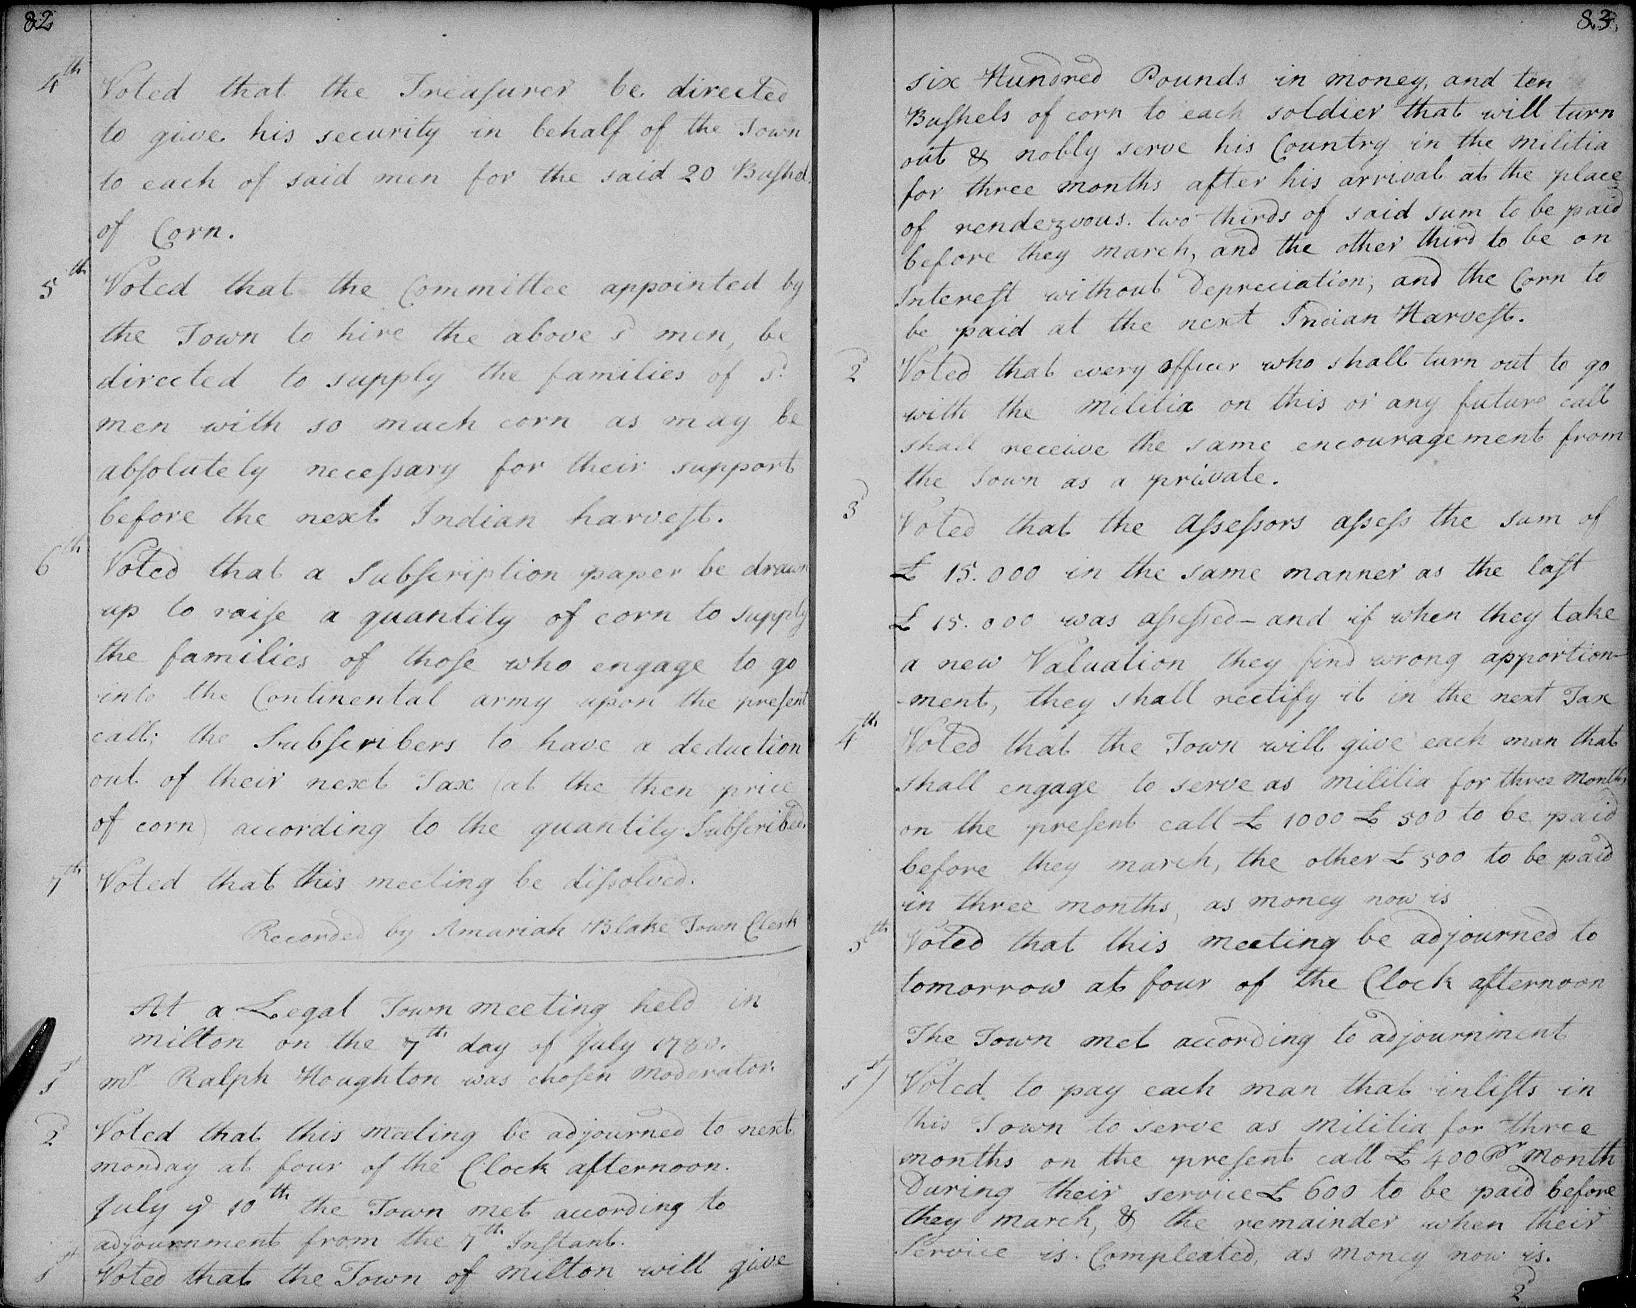 82
4th Voted that the Treaſurer be directed
to give his security in behalf of the Town
to each of said men for the said 20 Buſhel
of Corn.
5th Voted that the Committee appointed by
the Town to hire the above sd men, be
directed to supply the families of sd
men with so much corn as may be
abſolutely neceſsary for their support
before the next Indian harveſt.
6th Voted that a Subſcription paper be drawn
up to raiſe a quantity of corn to supply
the families of thoſe who engage to go
into the Continental army upon the preſent
call; the Subſcribers to have a deduction
out of their next Tax (at the then price
of corn) according to the quantity Subſcribed.
7th Voted that this meeting be diſsolved.
Recorded by Amariah Blake Town Clerk
At a Legal Town meeting held in
Milton on the 7th day of July 1780.
1st mr Ralph Houghton was choſen moderator
2d Voted that this meeting be adjourned to next
monday at four of the Clock afternoon.
July ye 10th the Town met according to
adjournment from the 7th Inſtant.
1st Voted that the Town of Milton will give
83.
six Hundred Pounds in money, and ten
Buſhels of corn to each soldier that will turn
out & nobly serve his Country in the Militia
for three months after his arrival at the place
of rendezvous. two thirds of said sum to be paid
before they march, and the other third to be on
Intereſt without Depreciation, and the Corn to
be paid at the next Indian Harveſt.
2d Voted that every officer who shall turn out to go
with the Militia on this or any future call
shall receive the same encouragement from
the Town as a private.
3d Voted that the Aſseſsors aſseſs the sum of
£ 15.000 in the same manner as the laſt
£ 15.000 was aſseſsed – and if when they take
a new Valuation they find wrong apportion-
-ment, they shall rectify it in the next Tax
4th Voted that the Town will give each man that
shall engage to serve as Militia for three Months
on the preſent call £ 1000 £ 500 to be paid
before they march, the other £ 500 to be paid
in three months, as money now is
5th Voted that this meeting be adjourned to
tomorrow at four of the Clock afternoon
The Town met according to adjournment
1st) Voted to pay each man that inliſts in
this Town to serve as Militia for three
months on the preſent call £ 400 Pr Month
During their service £ 600 to be paid before
they march, & the remainder when their
Service is Compleated, as money now is.
2d